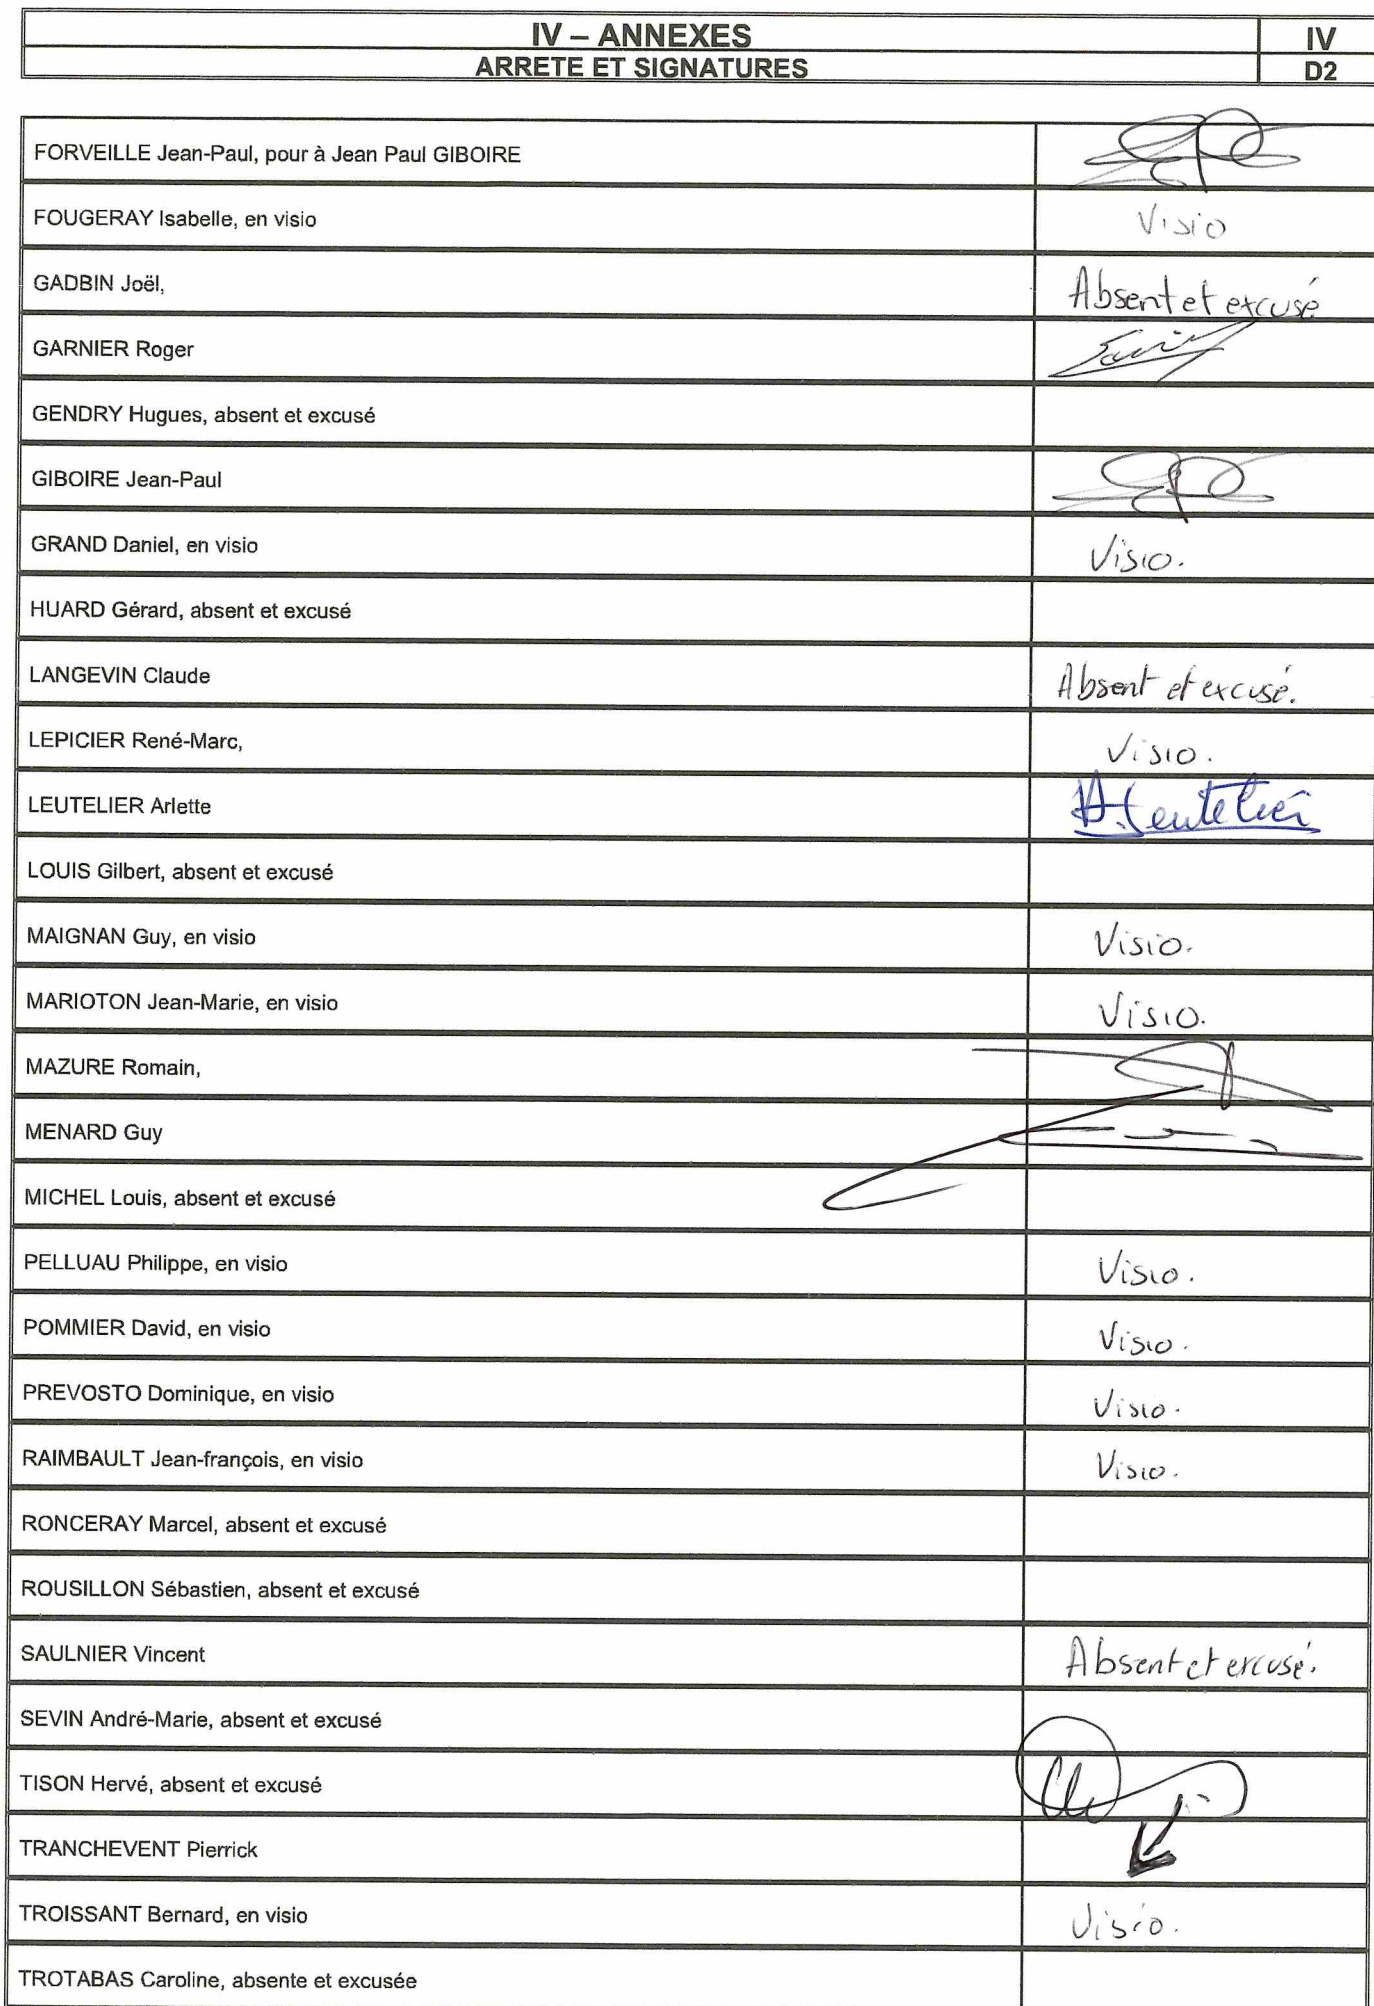 IV – ANNEXES
IV
ARRETE ET SIGNATURES
D2
FORVEILLE Jean-Paul, pour à Jean Paul GIBOIRE
FOUGERAY Isabelle, en visio
Visio
GADBIN Joël,
Absent et excusé
GARNIER Roger
GENDRY Hugues, absent et excusé
GIBOIRE Jean-Paul
GRAND Daniel, en visio
Visio.
HUARD Gérard, absent et excusé
LANGEVIN Claude
Absent et excusé.
LEPICIER René-Marc,
Visio.
LEUTELIER Arlette
A. Leutelier
LOUIS Gilbert, absent et excusé
MAIGNAN Guy, en visio
Visio.
MARIOTON Jean-Marie, en visio
Visio.
MAZURE Romain,
MENARD Guy
MICHEL Louis, absent et excusé
PELLUAU Philippe, en visio
Visio.
POMMIER David, en visio
Visio.
PREVOSTO Dominique, en visio
Visio.
RAIMBAULT Jean-françois, en visio
Visio.
RONCERAY Marcel, absent et excusé
ROUSILLON Sébastien, absent et excusé
SAULNIER Vincent
Absent et excusé.
SEVIN André-Marie, absent et excusé
TISON Hervé, absent et excusé
TRANCHEVENT Pierrick
TROISSANT Bernard, en visio
Visio.
TROTABAS Caroline, absente et excusée